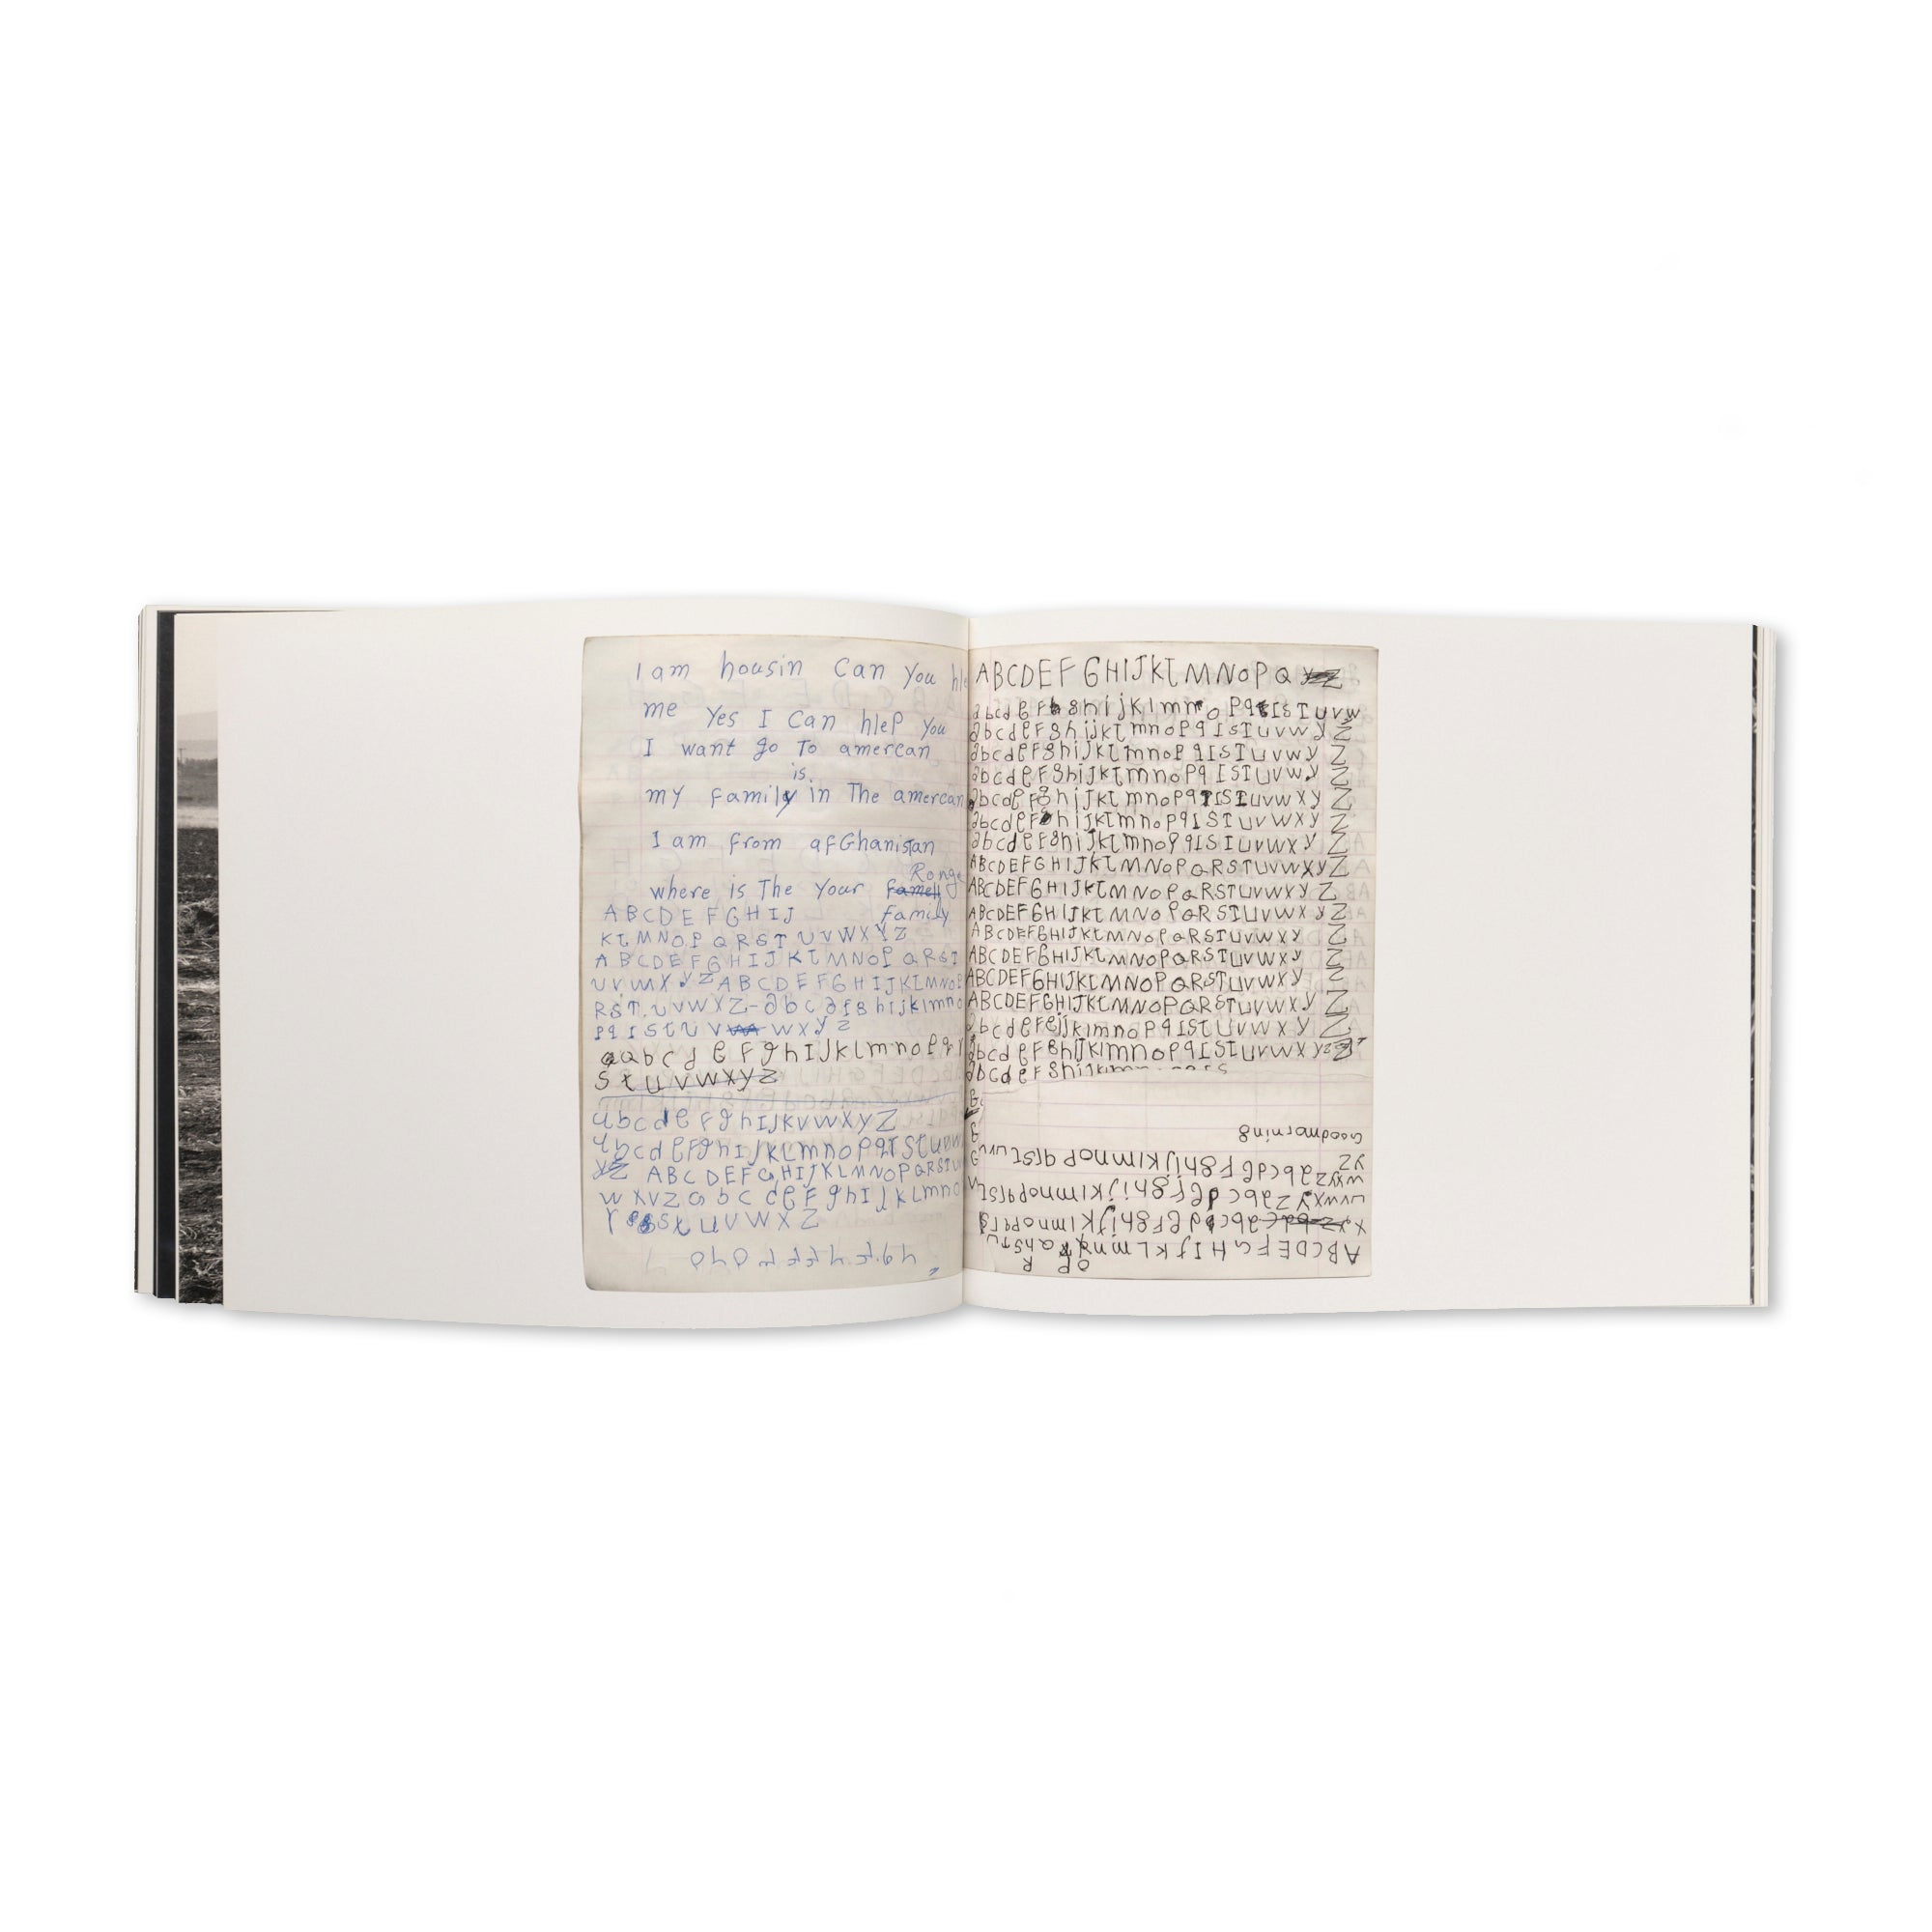 I am housin can you
me yes I can hlep you
I want go To amercan
is
my family in The amercan
I am from afGhanistan
Ronge
where is The your famell
family
ABCDEFGHIJ
KLMNOPQRSTUVWXYZ
ABCDEFGHIJKLMNOPQRST
UVWXYZABCDEFGHIJKLMNOP
RST.UVWXZ-abc
PqIstuv wxyz
aabcdeFghIJklmnopqr
stuvwxyz
abcdeFghIJKVWXYZ
abcdeFghIJkLmnopqrstuvw
yz ABCDEFGHIJKLMNOPQRSTU
wxvzabcdeFghIJkLmno
r s t u v w x z
ABCDEFGHIJKLMNOPQ
abcdeF ghijklmn o Pq IsTuvw
abcdeFghijKLmnoPqIsTuvwyZ
abcdeFghijKLmnoPqIsTuvwyZ
abcdeFghiJkLmnoPqIsTuvwyZ
abcdeFghiJkLmnoPq IsTuvwxyZ
abcdeF hiJkLmnoPqIsTuvwxyZ
abcdeFghijkLmnoPqIsIuvwxyZ
ABCDEFGHIJKLMNOPQRSTUVWXYZ
ABCDEFGHIJKLMNOPQRSTUVWXYZ
ABCDEFGHIJKLMNOPQRSTUVWXYZ
ABCDEFGHIJKLMNOPQRSTUVWXYZ
ABCDEFGHIJKLMNOPQRSTUVWXYZ
ABCDEFGHIJKLMNOPQRSTUVWXYZ
ABCDEFGHIJKLMNOPQRSTUVWXYZ
abcdeFeijkLmnoPqIsTUvwxyZ
abcdeFghIJKLmnoPqIsTUVWXYZ
abcdeFghijkLmn
Goodmorning
yz
wxyzabcdeFghijklmnopqrstuvu
uvwxyzabcdeFghijklmnopqrst
x abcdeFghijklmnopqrs
ABCDEFGHIJKLmn
R OP